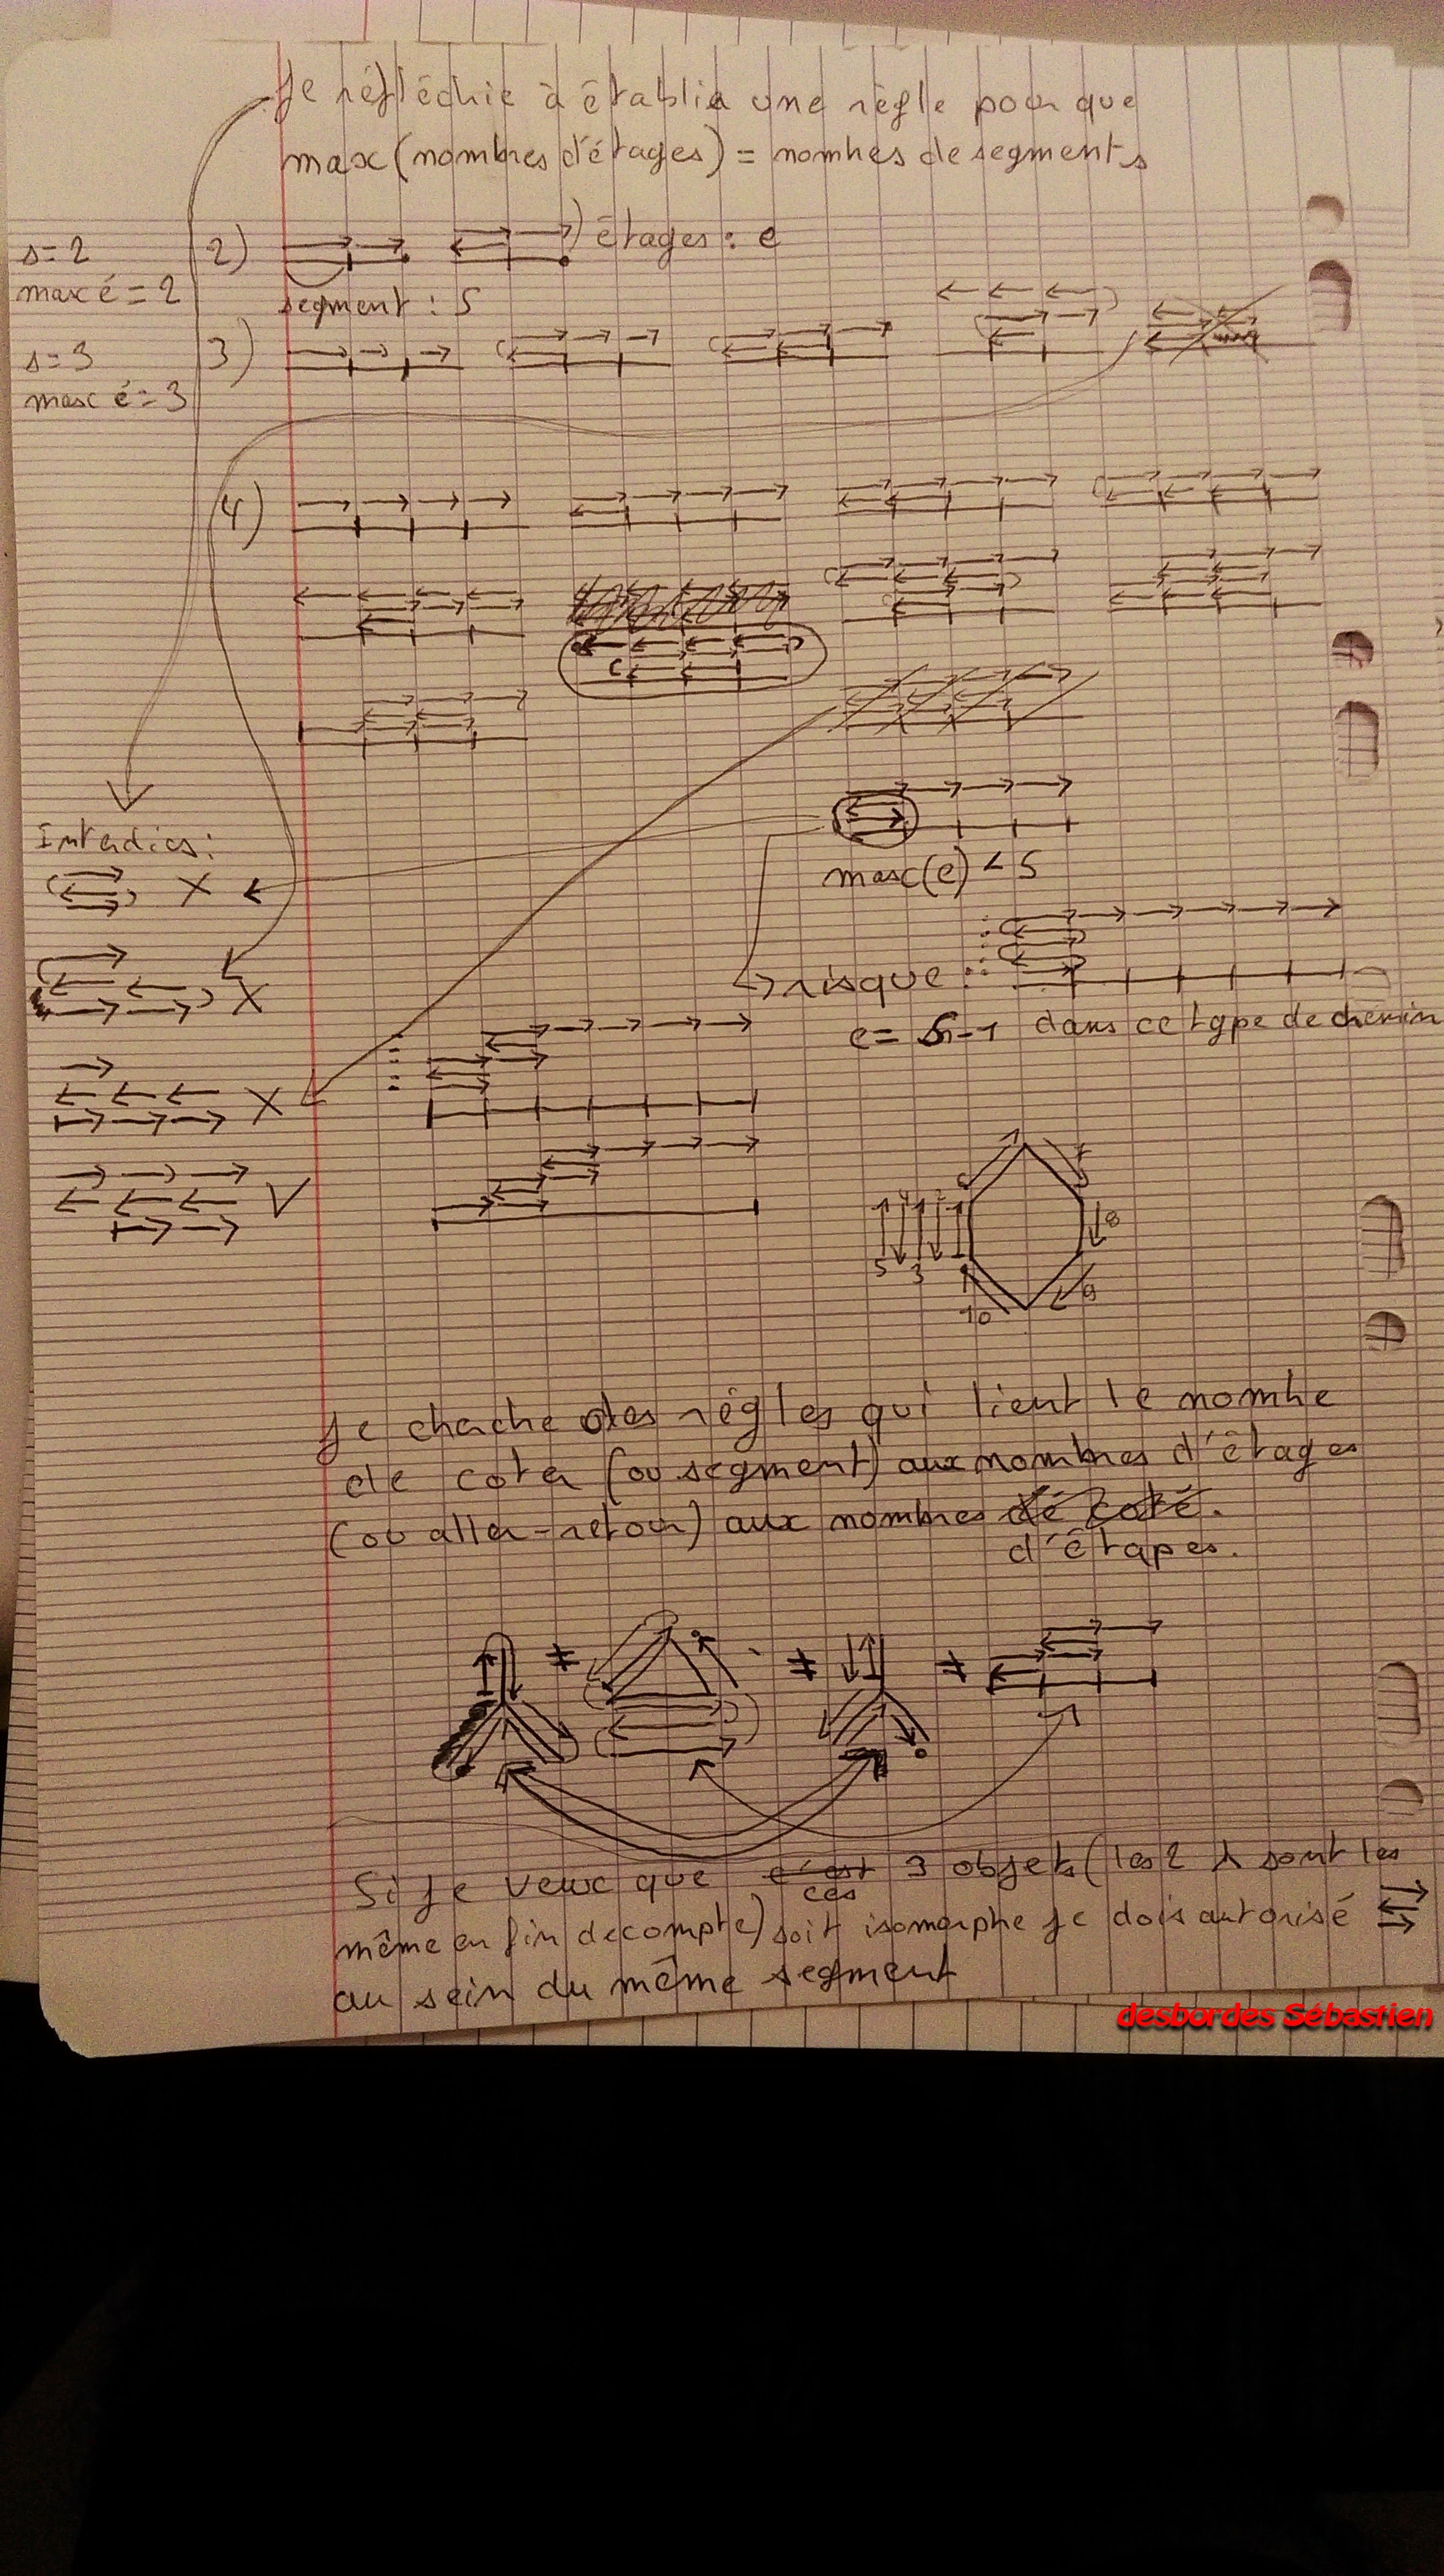 Je réfléchie à établir une règle pour que
max(nombres d'étages) = nombres de segments
s=2
max é = 2
2)
étages : e
segment : S
s=3
max é = 3
3)
4)
Interdics :
X
max(e) < S
X
risque :
e = S-1 dans ce type de chemin
X
V
7
8
5 4 3 2
9
10
Je cherche des règles qui lient le nombre
de coter (ou segment) aux nombres d'étages
(ou aller-retour) aux nombres de coté.
d'étapes.
≠ ≠ ≠
Si je veux que c'est 3 objets (les 2 λ sont les
ces
même en fin de compte) soit isomorphe je dois autorisé
au sein du même segment
desbordes Sébastien